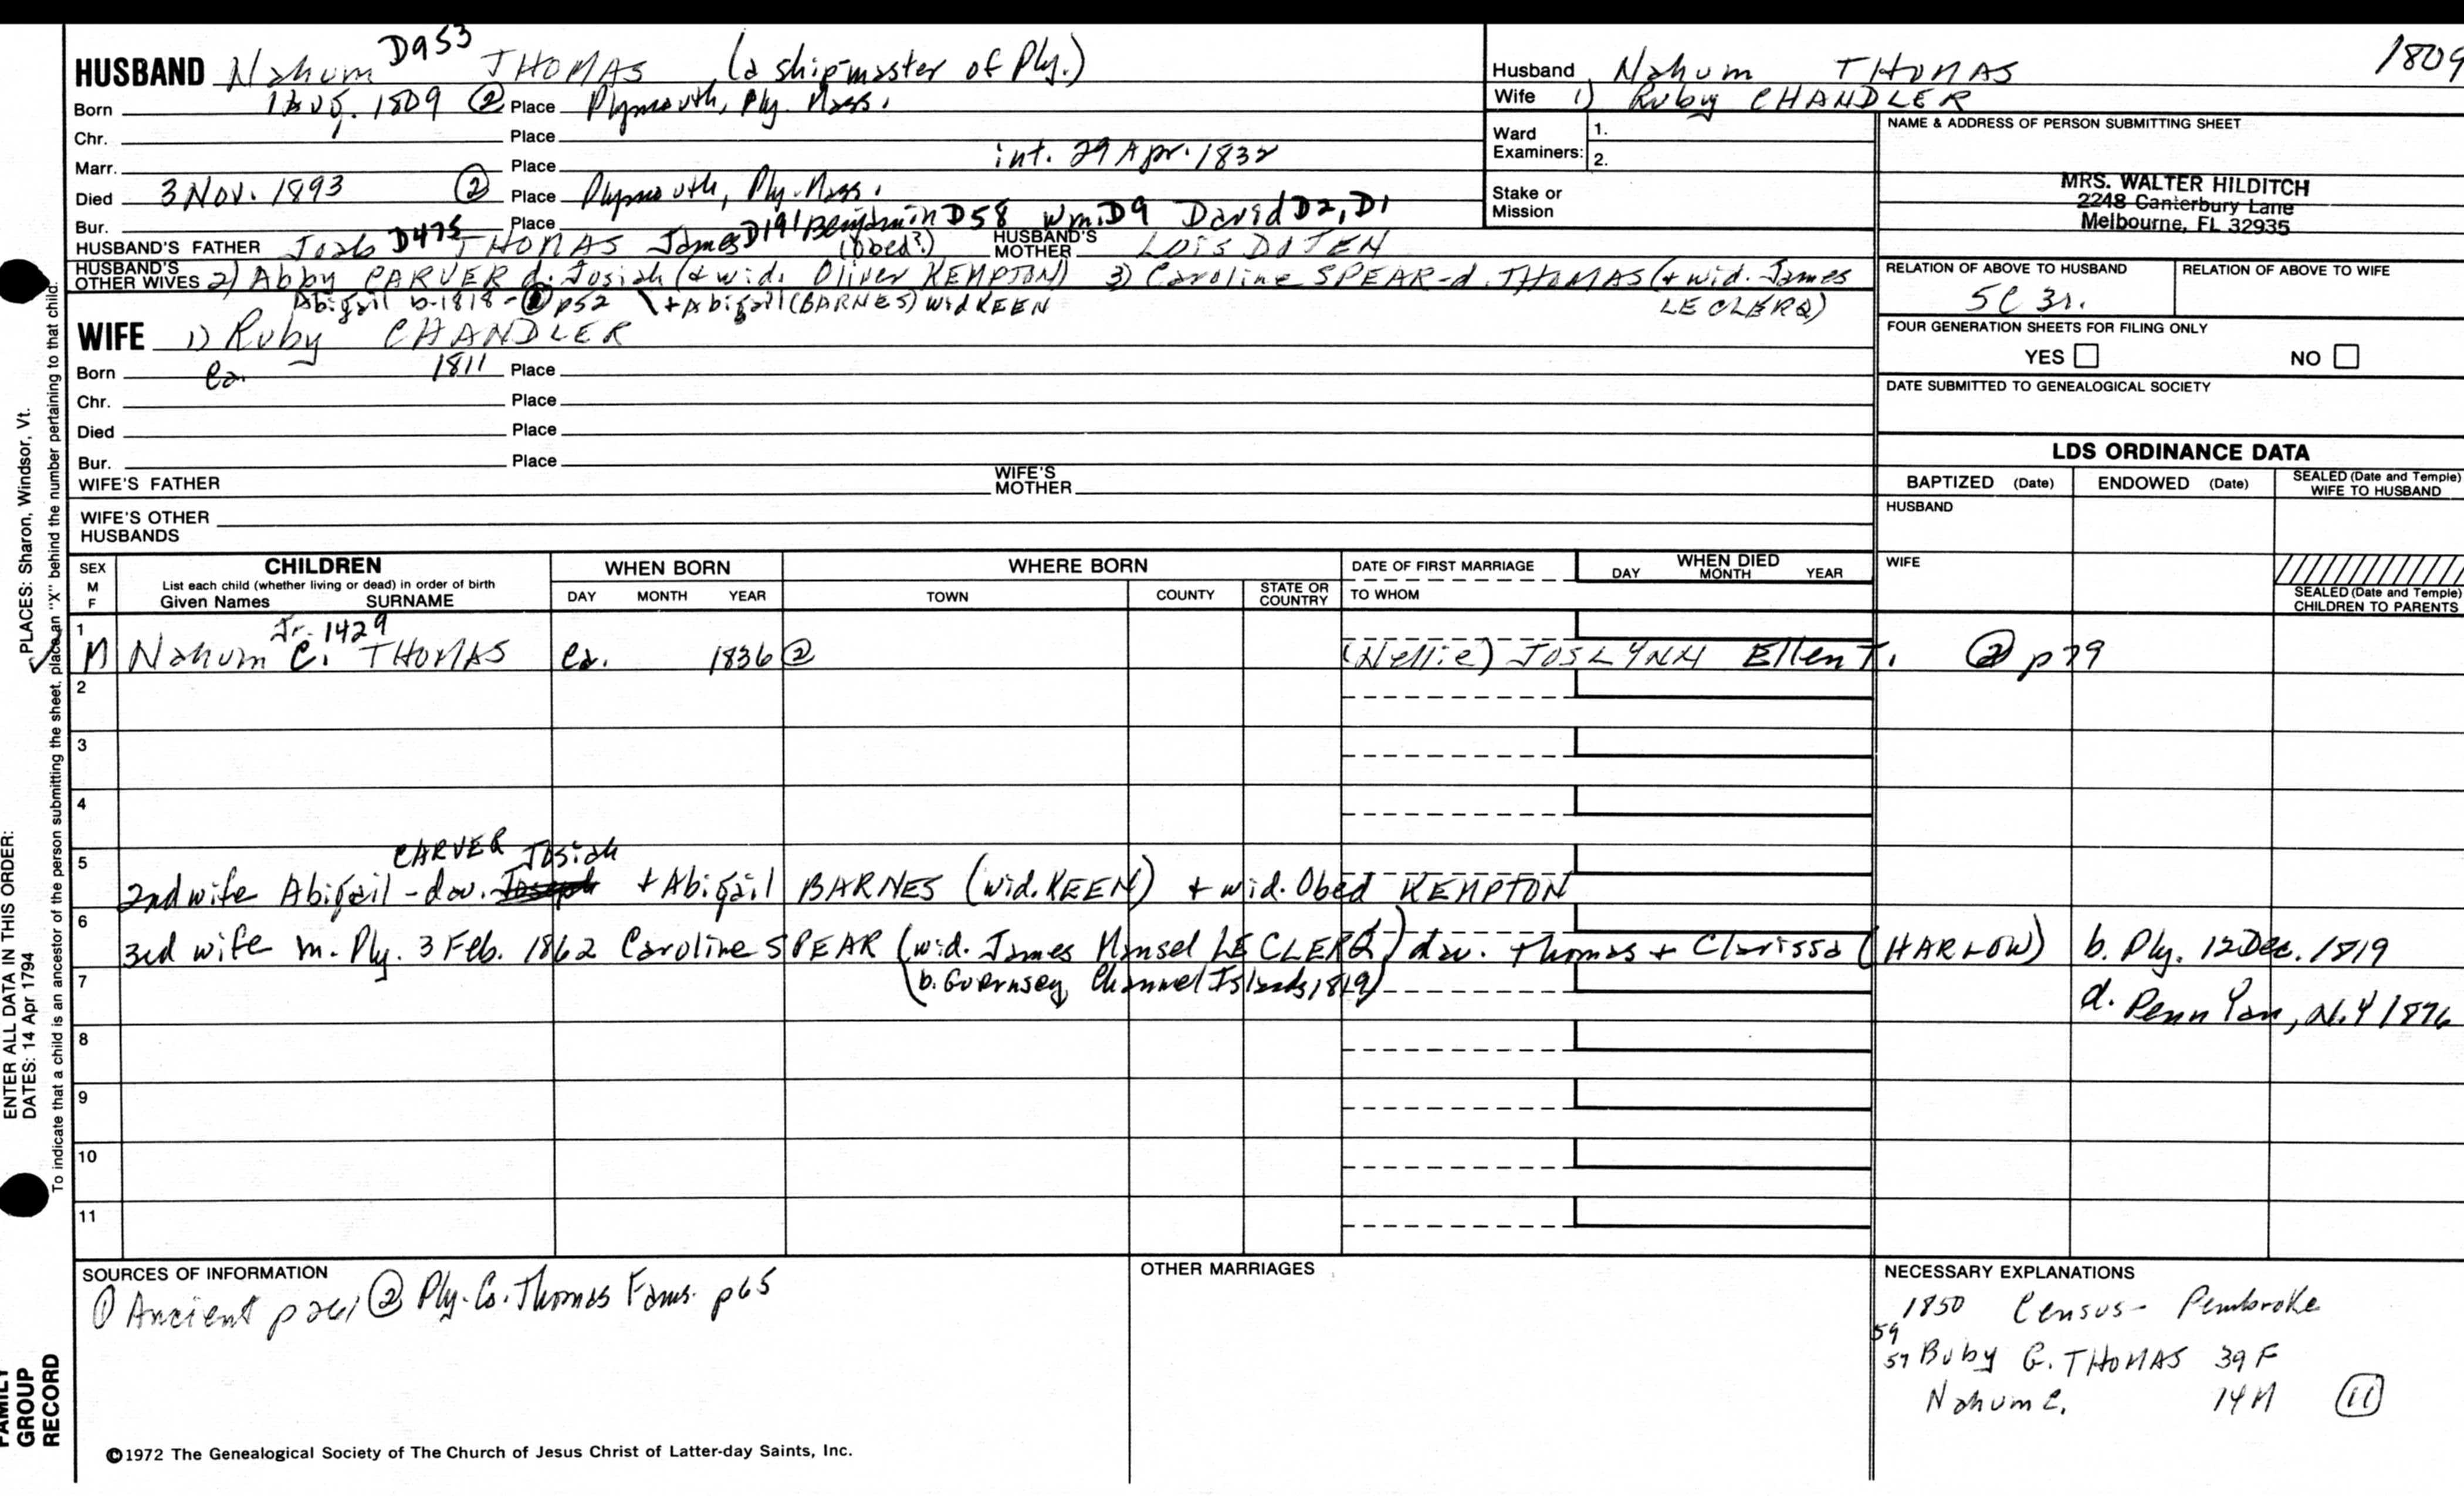 HUSBAND Nahum D953 THOMAS (a shipmaster of Ply.)
Born 1809 ② Place Plymouth, Ply. Mass.
Chr. Place
Marr. Place int. 29 Apr. 1832
Died 3 Nov. 1893 ② Place Plymouth, Ply. Mass.
Bur. Place
HUSBAND'S FATHER Joab D475 THOMAS James D191 Benjamin D58 Wm. D9 David D2, D1
(Obed?) HUSBAND'S MOTHER LOIS DOTEN
HUSBAND'S OTHER WIVES 2) Abby CARVER d. Josiah (& wid. Oliver KEMPTON) 3) Caroline SPEAR-d. THOMAS (+ wid. James LE CLERQ)
Abigail b. 1818 - p52 + Abigail (BARNES) wid KEEN
WIFE 1) Ruby CHANDLER
Born ca. 1811 Place
Chr. Place
Died Place
Bur. Place
WIFE'S FATHER WIFE'S MOTHER
WIFE'S OTHER HUSBANDS
Husband Nahum THOMAS 1809
Wife 1) Ruby CHANDLER
Ward Examiners: 1.
2.
Stake or Mission
NAME & ADDRESS OF PERSON SUBMITTING SHEET
MRS. WALTER HILDITCH
2248 Canterbury Lane
Melbourne, FL 32935
RELATION OF ABOVE TO HUSBAND RELATION OF ABOVE TO WIFE
5C 3r.
FOUR GENERATION SHEETS FOR FILING ONLY
YES NO
DATE SUBMITTED TO GENEALOGICAL SOCIETY
LDS ORDINANCE DATA
BAPTIZED (Date) ENDOWED (Date) SEALED (Date and Temple) WIFE TO HUSBAND
HUSBAND
WIFE
SEALED (Date and Temple) CHILDREN TO PARENTS
SEX M F
CHILDREN
List each child (whether living or dead) in order of birth
Given Names SURNAME
WHEN BORN
DAY MONTH YEAR
WHERE BORN
TOWN COUNTY STATE OR COUNTRY
DATE OF FIRST MARRIAGE
TO WHOM
WHEN DIED
DAY MONTH YEAR
1 Jr. 1429
M Nahum C. THOMAS ca. 1836 ② (Nellie) JOSLYNN Ellen T. ② p79
2
3
4
5 CARVER Josiah
2nd wife Abigail - dau. Joseph + Abigail BARNES (wid. KEEN) + wid. Obed KEMPTON
6
3rd wife m. Ply. 3 Feb. 1862 Caroline SPEAR (wid. James Mansel LE CLERQ) dau. Thomas + Clarissa (HARLOW) b. Ply. 12 Dec. 1819
7 (b. Guernsey, Channel Islands 1819) d. Penn Yan, N.Y 1876
8
9
10
11
SOURCES OF INFORMATION
① Ancient p 261 ② Ply. Co. Thomas Fams. p65
OTHER MARRIAGES
NECESSARY EXPLANATIONS
1850 Census - Pembroke
59
57 Buby G. THOMAS 39 F
Nahum C. 14 M ⑪
©1972 The Genealogical Society of The Church of Jesus Christ of Latter-day Saints, Inc.
FAMILY GROUP RECORD
ENTER ALL DATA IN THIS ORDER:
DATES: 14 Apr 1794
PLACES: Sharon, Windsor, Vt.
To indicate that a child is an ancestor of the person submitting the sheet, place an "X" behind the number pertaining to that child.